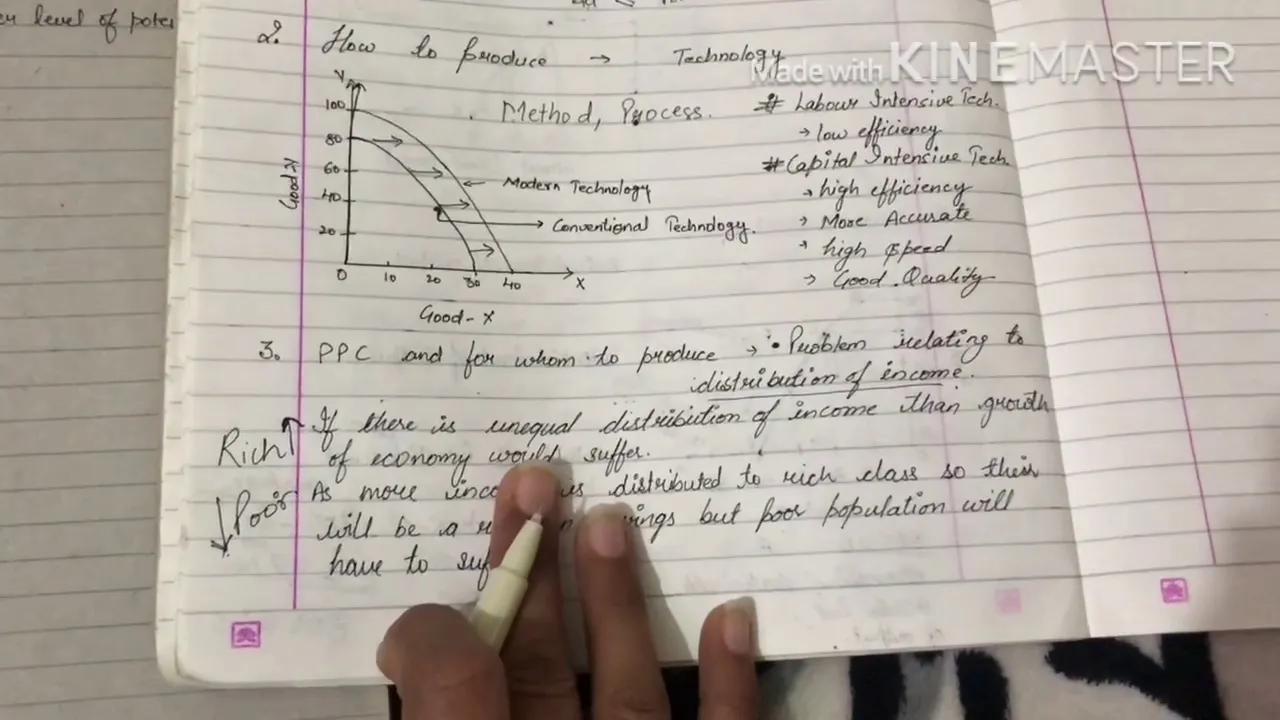 er level of poten
2. How to produce → Technology
Made with KINEMASTER
Method, Process.
# Labour Intensive Tech.
→ low efficiency
# Capital Intensive Tech.
→ high efficiency
→ More Accurate
→ high speed
→ Good Quality
Y
100
80
60
40
20
0 10 20 30 40 X
Good-Y
Good-X
← Modern Technology
→ Conventional Technology.
3. PPC and for whom to produce → • Problem relating to
distribution of income.
Rich ↑
If there is unequal distribution of income than growth
of economy would suffer.
↓ Poor
As more distributed to rich class so their
will be a but poor population will
have to